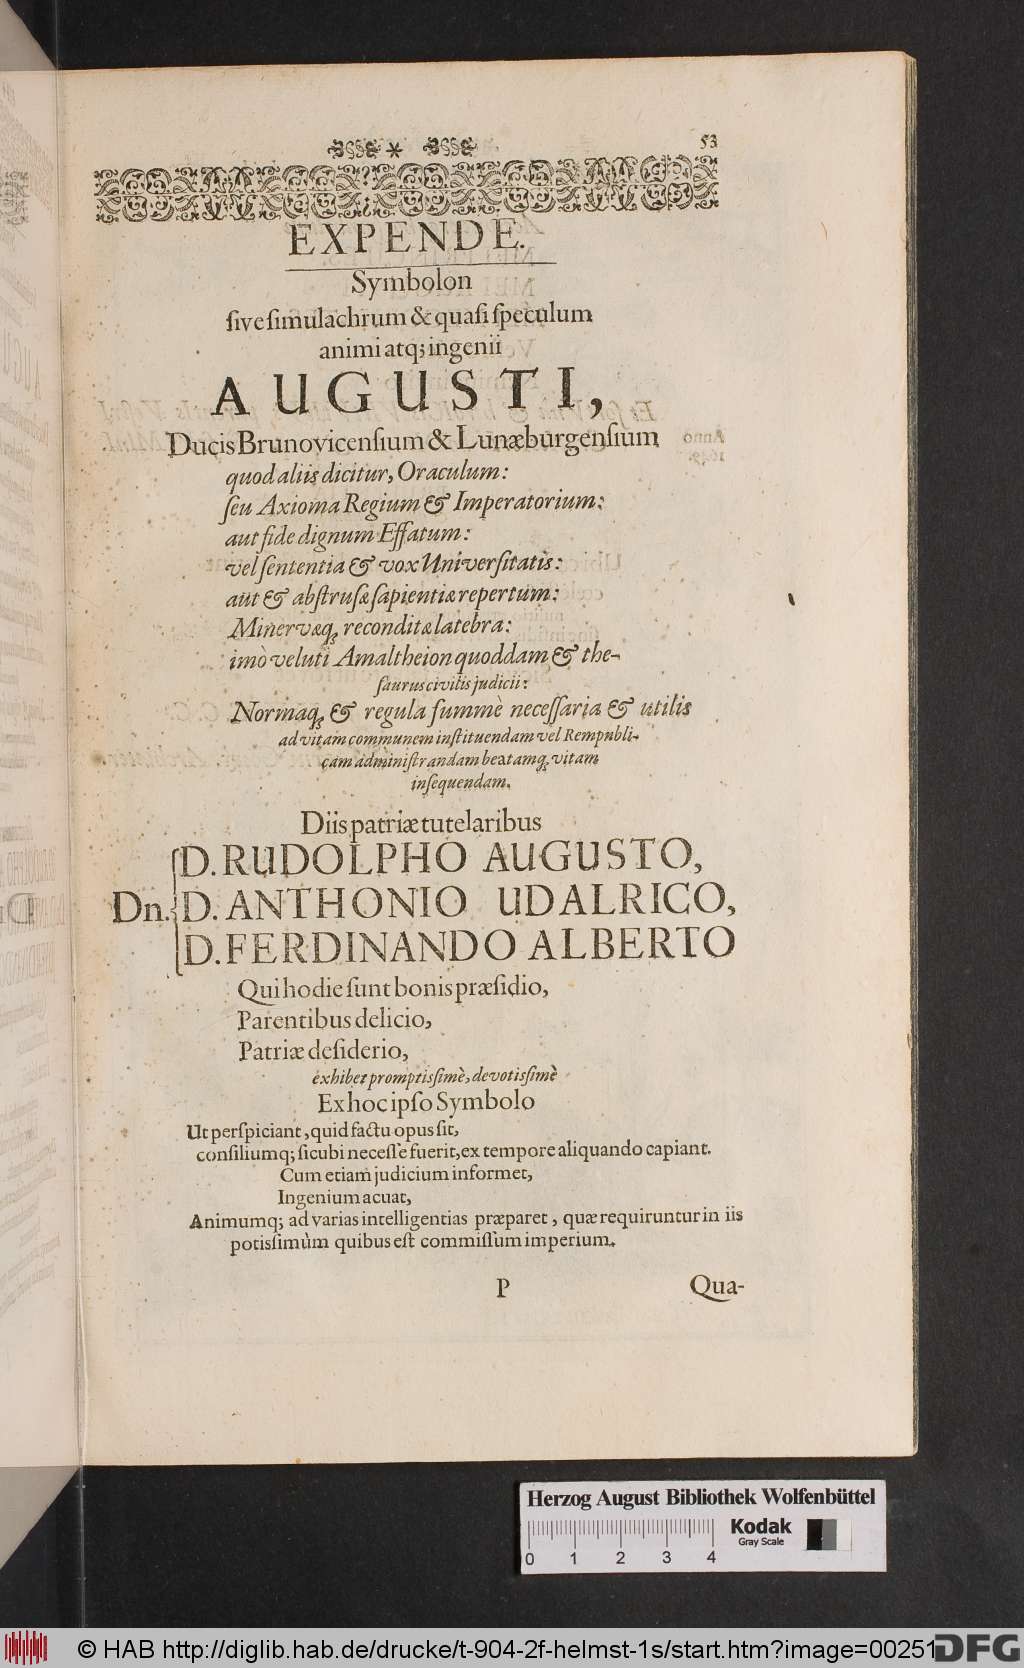 53
EXPENDE.
Symbolon
ſive ſimulachrum & quaſi ſpeculum
animi atq; ingenii
AUGUSTI,
Ducis Brunovicenſium & Lunæburgenſium
quod aliis dicitur, Oraculum:
ſeu Axioma Regium & Imperatorium:
aut fide dignum Effatum:
vel ſententia & vox Univerſitatis:
aut & abſtruſæ ſapientiæ repertum:
Minervæq; reconditæ latebra:
imò veluti Amaltheion quoddam & the-
ſaurus civilis judicii:
Normaq; & regula ſummè neceſſaria & utilis
ad vitam communem inſtituendam vel Rempnbli-
cam adminiſtrandam beatamq; vitam
inſequendam.
Diis patriæ tutelaribus
D. RUDOLPHO AUGUSTO,
Dn. D. ANTHONIO UDALRICO,
D. FERDINANDO ALBERTO
Qui hodie ſunt bonis præſidio,
Parentibus delicio,
Patriæ deſiderio,
exhibet promptiſſimè, devotiſſimè
Ex hoc ipſo Symbolo
Ut perſpiciant, quid factu opus ſit,
conſiliumq; ſicubi neceſſe fuerit, ex tempore aliquando capiant.
Cum etiam judicium informet,
Ingenium acuat,
Animumq; ad varias intelligentias præparet, quæ requiruntur in iis
potiſſimùm quibus eſt commiſſum imperium.
P Qua-
Herzog August Bibliothek Wolfenbüttel
Kodak
Gray Scale
0 1 2 3 4
© HAB http://diglib.hab.de/drucke/t-904-2f-helmst-1s/start.htm?image=00251
DFG